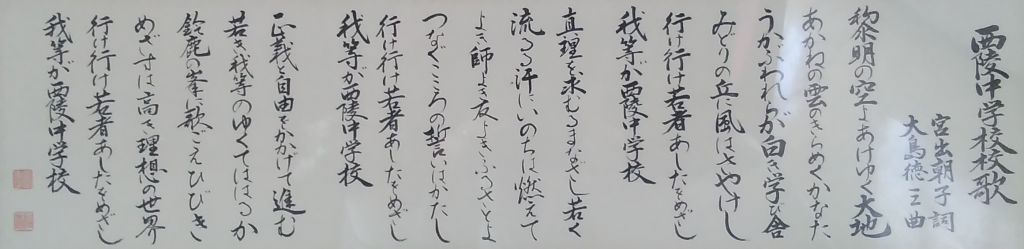 西陵中学校校歌
宮出朝子 詞
大島徳三 曲
黎明の空よあけゆく大地
あかねの雲のきらめくかなた
うかぶわれらが白き学び舎
みどりの丘に風はさやけし
行け行け若者あしたをめざし
我等が西陵中学校
真理を求むるまなざし若く
流るる汗にいのちは燃えて
よき師よき友よきふるさとよ
つなぐこころの誓いはかたし
行け行け若者あしたをめざし
我等が西陵中学校
正義と自由をかかげて進む
若き我等のゆくてははるか
鈴鹿の峯に歌ごえひびき
めざすは高き理想の世界
行け行け若者あしたをめざし
我等が西陵中学校